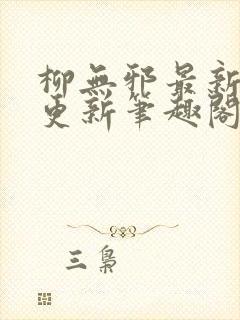 柳無邪最新
更新筆趣閣
三梟